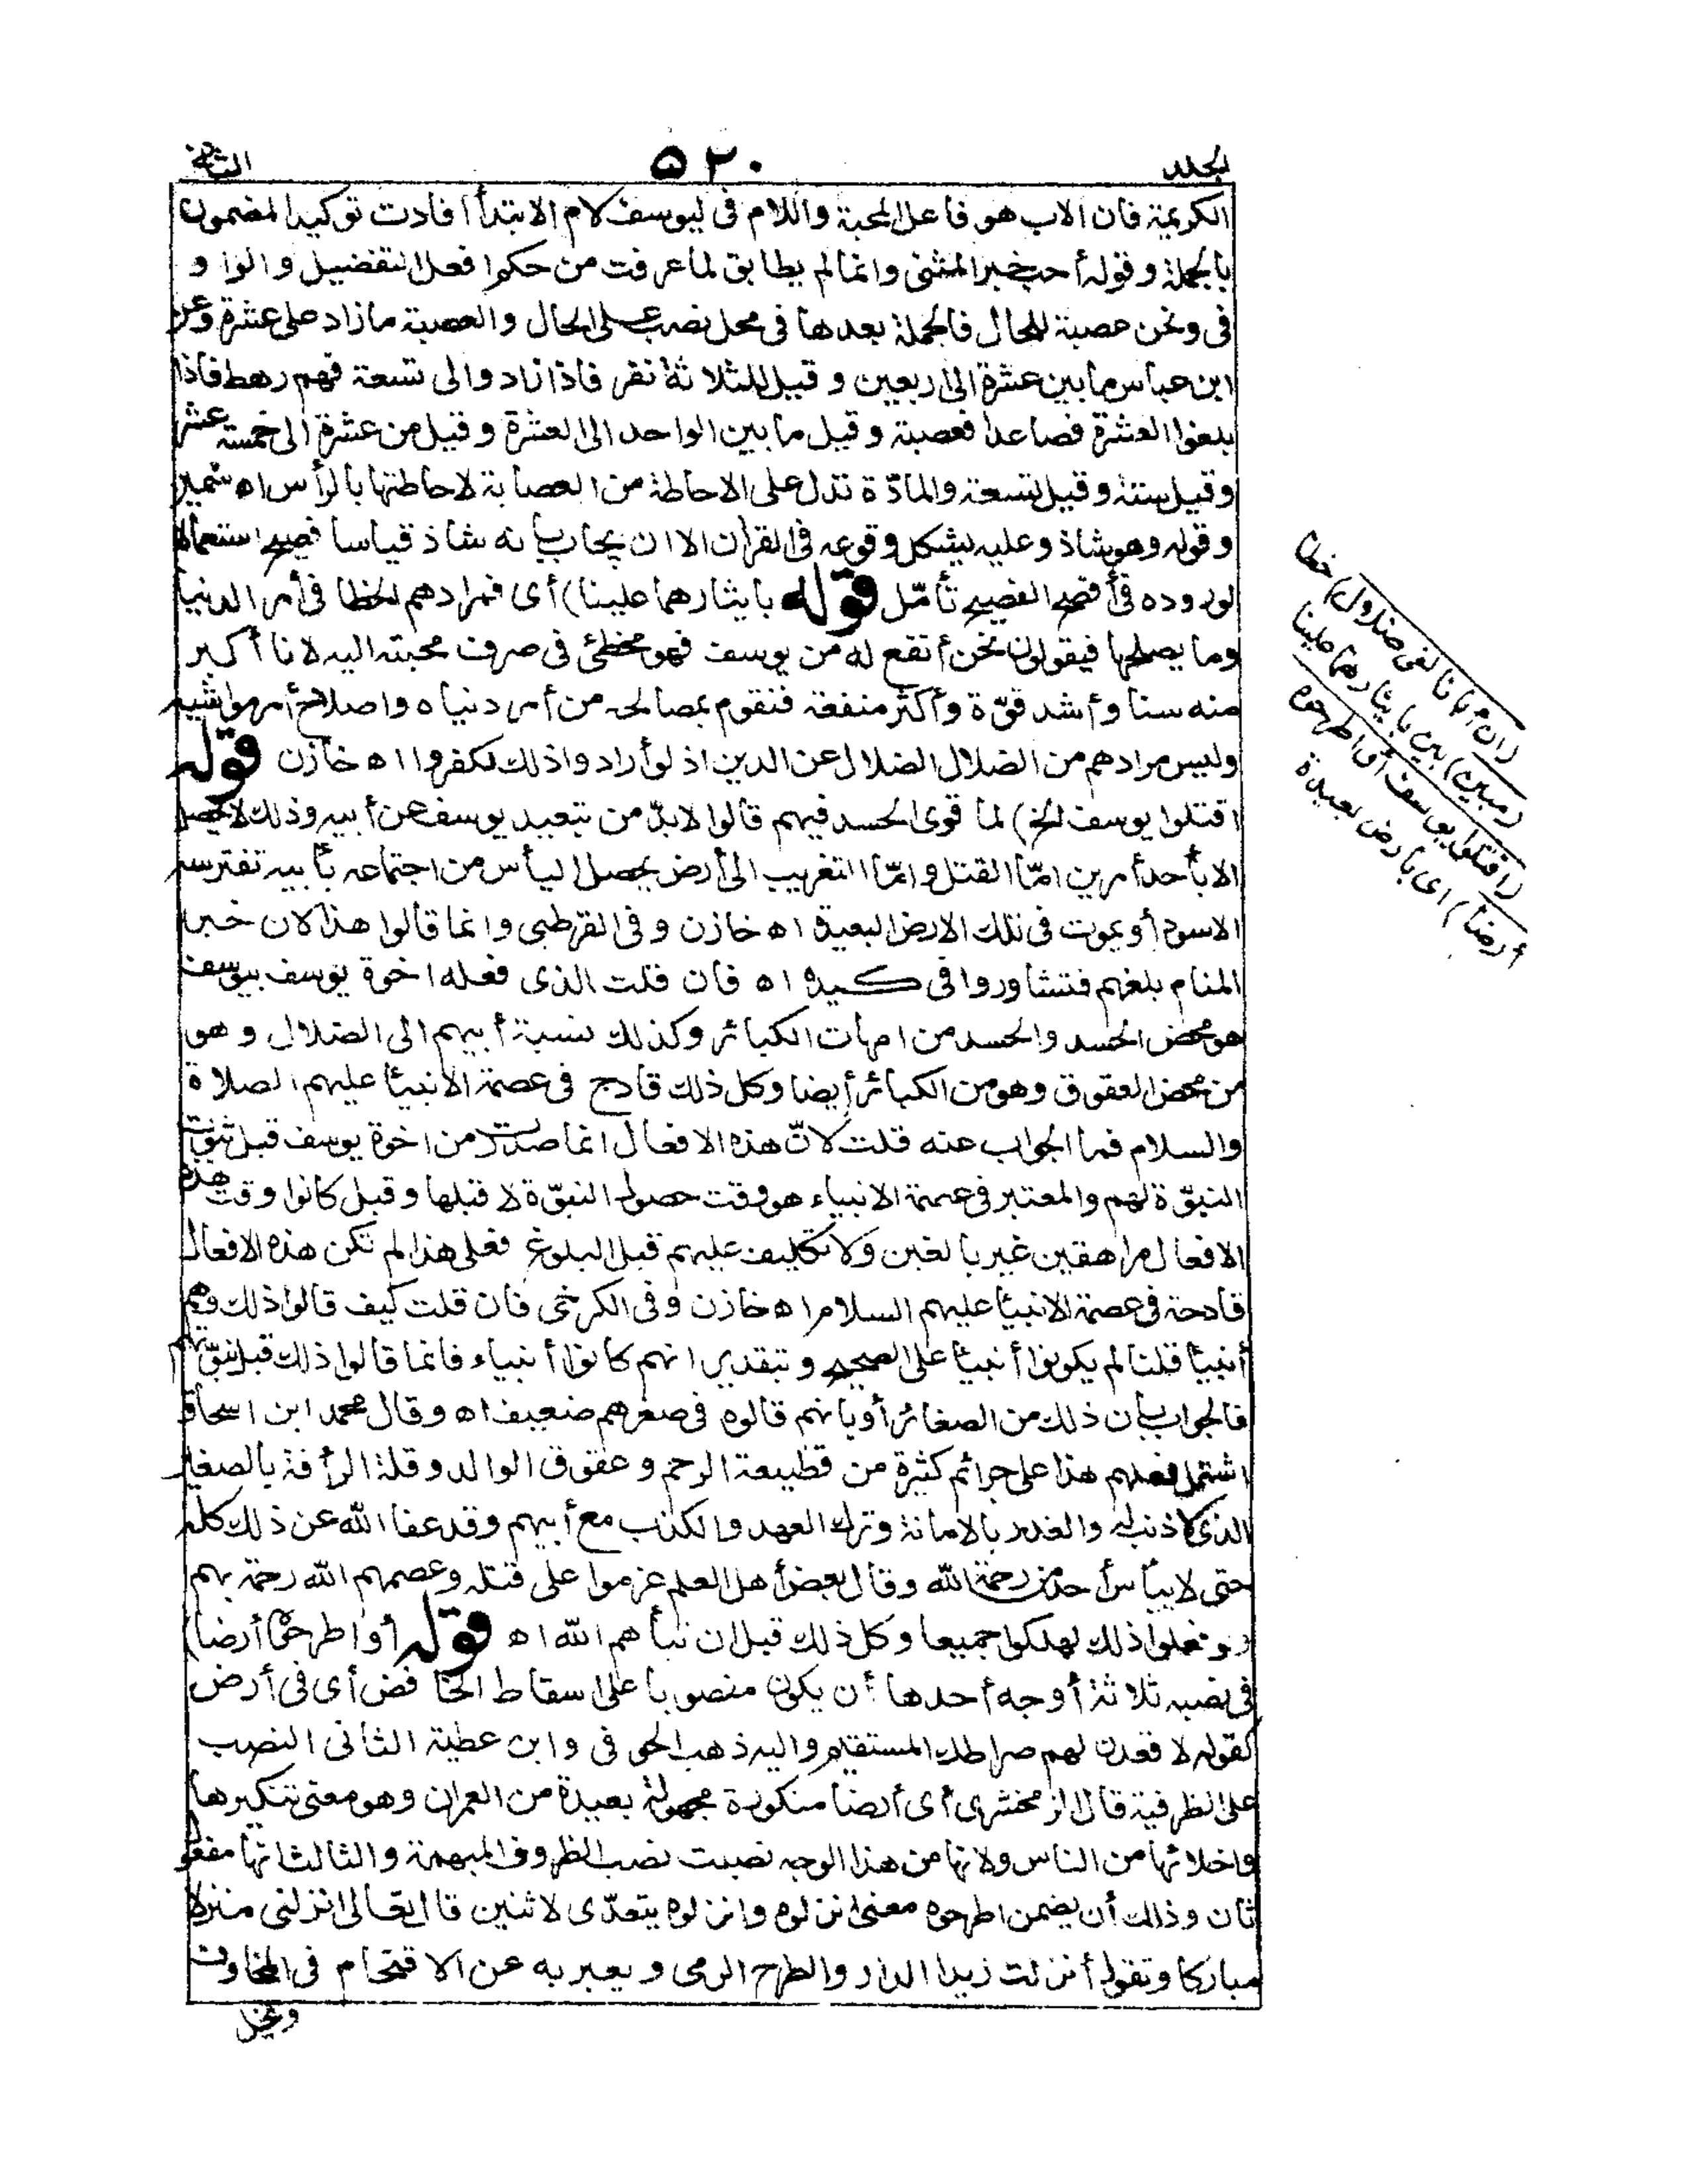 المجلد ٥٢٠ الثاني
الكريمة فان الاب هو فاعل المحبة واللام فى ليوسف لام الابتدأ افادت توكيدا لمضمون
بالجملة وقوله أحب خبر المثنى وانما لم يطابق لما عرفت من حكم افعل التفضيل والوا و
فى ونحن عصبة للحال فالجملة بعدها فى محل نصب على الحال والعصبة ما زاد على عشرة وعن
ابن عباس ما بين عشرة الى اربعين وقيل للثلاثة نفر فاذا زاد والى تسعة فهم رهط فاذا
بلغوا العشرة فصاعدا فعصبة وقيل ما بين الواحد الى العشرة وقيل من عشرة الى خمسة عشر
وقيل ستة وقيل تسعة والمادّة تدل على الاحاطة من العصابة لاحاطتها بالرأس اه سمين
وقوله وهو شاذ وعليه يشكل وقوعه فى القران الا ان يجاب بانه شاذ قياسا فصيح استعمالا
لوروده فى أفصح الفصيح تأمّل قوله بايثارهما علينا) أى فمرادهم الخطا فى أمر الدنيا
وما يصلحها فيقولون نحن أنفع له من يوسف فهو مخطئ فى صرف محبته اليه لانا أكبر
منه سنا وأشد قوّة وأكثر منفعة فنقوم بمصالحه من أمر دنياه واصلاح أمر مواشيه
وليس مرادهم من الضلال الضلال عن الدين اذ لو أراد واذلك لكفروا اه خازن قوله
اقتلوا يوسف الخ) لما قوى الحسد فيهم قالوا لابدّ من تبعيد يوسف عن أبيه وذلك لا يحصل
الا بأحد أمرين امّا القتل وامّا التغريب الى أرض يحصل اليأس من اجتماعه بأبيه تفترسه
الاسود أو يموت فى تلك الارض البعيدة اه خازن وفى القرطبى وانما قالوا هذا لان خبر
المنام بلغهم فتشاوروا فى كيده اه فان قلت الذى فعله اخوة يوسف بيوسف
هو محض الحسد والحسد من امهات الكبائر وكذلك نسبة أبيهم الى الضلال وهو
من محض العقوق وهو من الكبائر أيضا وكل ذلك قادح فى عصمة الأنبيأ عليهم الصلاة
والسلام فما الجواب عنه قلت لانّ هذه الافعال انما صدرت من اخوة يوسف قبل ثبوت
النبوّة لهم والمعتبر فى عصمة الانبياء هو وقت حصول النبوّة لا قبلها وقيل كانوا وقت هذه
الافعال مراهقين غير بالغين ولا تكليف عليهم قبل البلوغ فعلى هذا لم تكن هذه الافعال
قادحة فى عصمة الانبيأ عليهم السلام اه خازن وفى الكرخى فان قلت كيف قالوا ذلك وهم
أنبيأ قلنا لم يكونوا أنبيأ على الصحيح وبتقدير انهم كانوا أنبياء فانما قالوا ذلك قبل نبوّتهم
فالجواب بان ذلك من الصغائر أو بانهم قالوه فى صغرهم ضعيف اه وقال محمد ابن اسحاق
اشتمل فعلهم هذا على جرائم كثيرة من قطيعة الرحم وعقوق الوالد وقلة الرأفة بالصغير
الذى لا ذنب له والغدر بالامانة وترك العهد والكذب مع أبيهم وقد عفا الله عن ذلك كله
حتى لا ييأس أحد من رحمة الله وقال بعض أهل العلم عزموا على قتله وعصمهم الله رحمة بهم
ولو فعلوا ذلك لهلكوا جميعا وكل ذلك قبل ان نبأهم الله اه قوله أو اطرحوه أرضا)
فى نصبه ثلاثة أوجه أحدها أن يكون منصوبا على اسقاط الخافض أى فى أرض
كقوله لاقعدن لهم صراطك المستقيم واليه ذهب الحوفى وابن عطية الثانى النصب
على الظرفية قال الزمخشرى أى أرضا منكورة مجهولة بعيدة من العمران وهو معنى تنكيرها
واخلائها من الناس ولانها من هذا الوجه نصبت نصب الظروف المبهمة والثالث انها مفعول
ثان وذلك أن يضمن اطرحوه معنى انزلوه وانزلوه يتعدّى لاثنين قال تعالى انزلنى منزلا
مباركا وتقول أنزلت زيدا الدار والطرح الرمى ويعبر به عن الاقتحام فى المخاوف
(ان أبانا لفى ضلال) خطا
(مبين) بين بايثارهما علينا
(اقتلوا يوسف أو اطرحوه
أرضا) اى بأرض بعيدة